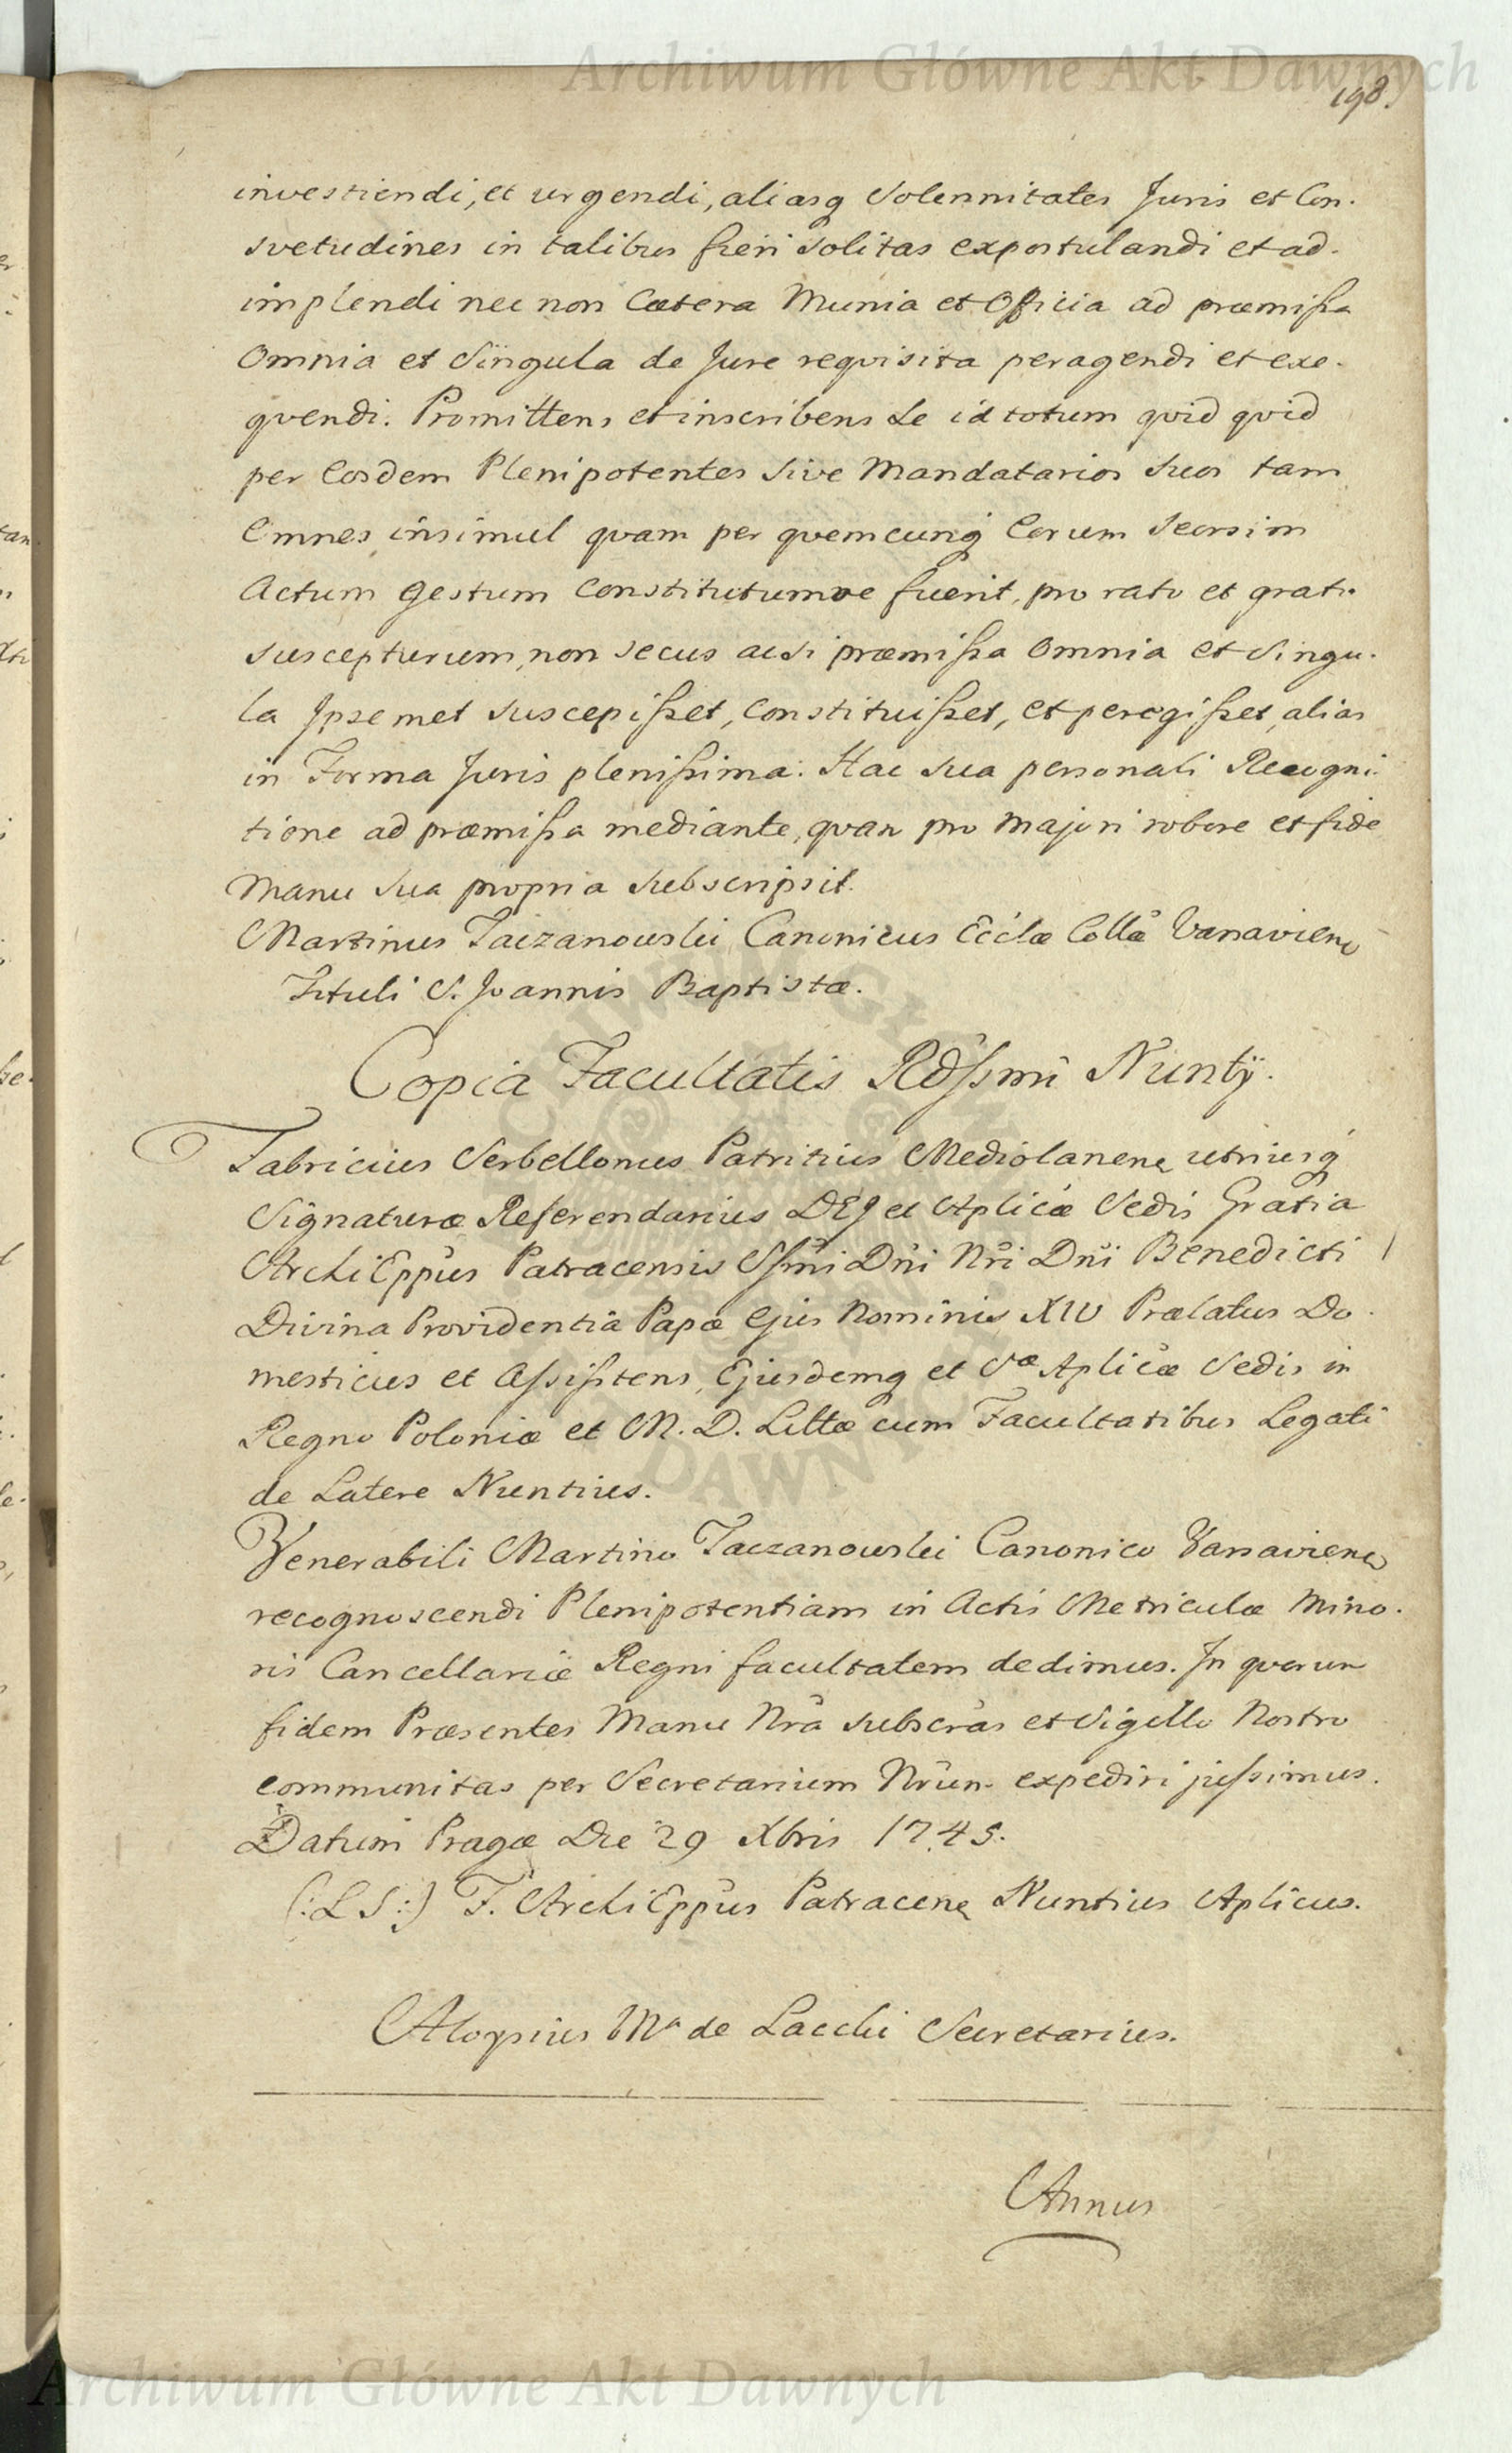 Archiwum Główne Akt Dawnych
198.
investiendi, et urgendi, aliasq Solennitates Juris et Con-
svetudines in talibus fieri Solitas expostulandi et ad-
implendi nec non Cætera Munia et Officia ad præmissa
Omnia et Singula de Jure requisita peragendi et exe-
qvendi. Promittens et inscribens Se id totum qvid qvid
per Eosdem Plenipotentes Sive Mandatarios Suos tam
Omnes insimul qvam per qvemcunq Eorum Seorsim
Actum Gestum Constitutumve fuerit, pro rato et grato
Suscepturum, non Secus ac Si præmissa Omnia et Singu-
la Jpsemet Suscepisset, Constituisset, et peregisset, alias
in Forma Juris plenissima. Hac Sua personali Recogni-
tione ad præmissa mediante, qvam pro Majori robore et fide
Manu Sua propria Subscripsit.
Martinus Taczanowski Canonicus Ecclæ Collæ Varsavien
Tituli S. Joannis Baptistæ.
Copia Facultatis Rdssmi Nuntij.
Fabricius Serbellonus Patritius Mediolanen utriusq
Signaturæ Referendarius DEJ et Aplicæ Sedis Gratia
ArchiEppus Patracensis Ssmi Dni Nri Dni Benedicti
Divina Providentia Papæ Ejus Nominis XIV Prælatus Do-
mesticus et Assistens, Ejusdemq et Sæ Aplicæ Sedis in
Regno Poloniæ et M. D. Littæ cum Facultatibus Legati
de Latere Nuntius.
Venerabili Martino Taczanowski Canonico Varsavien
recognoscendi Plenipotentiam in Actis Metriculæ Mino-
ris Cancellariæ Regni facultatem dedimus. Jn qvorum
fidem Præsentes Manu Nra Subscras et Sigillo Nostro
communitas per Secretarium Nrum expediri jussimus.
Datum Pragæ Die 29 Xbris 1745.
(:L S:) F. ArchiEppus Patracen Nuntius Aplicus.
Aloysius Ma de Lacchi Secretarius.
Annus
Archiwum Główne Akt Dawnych